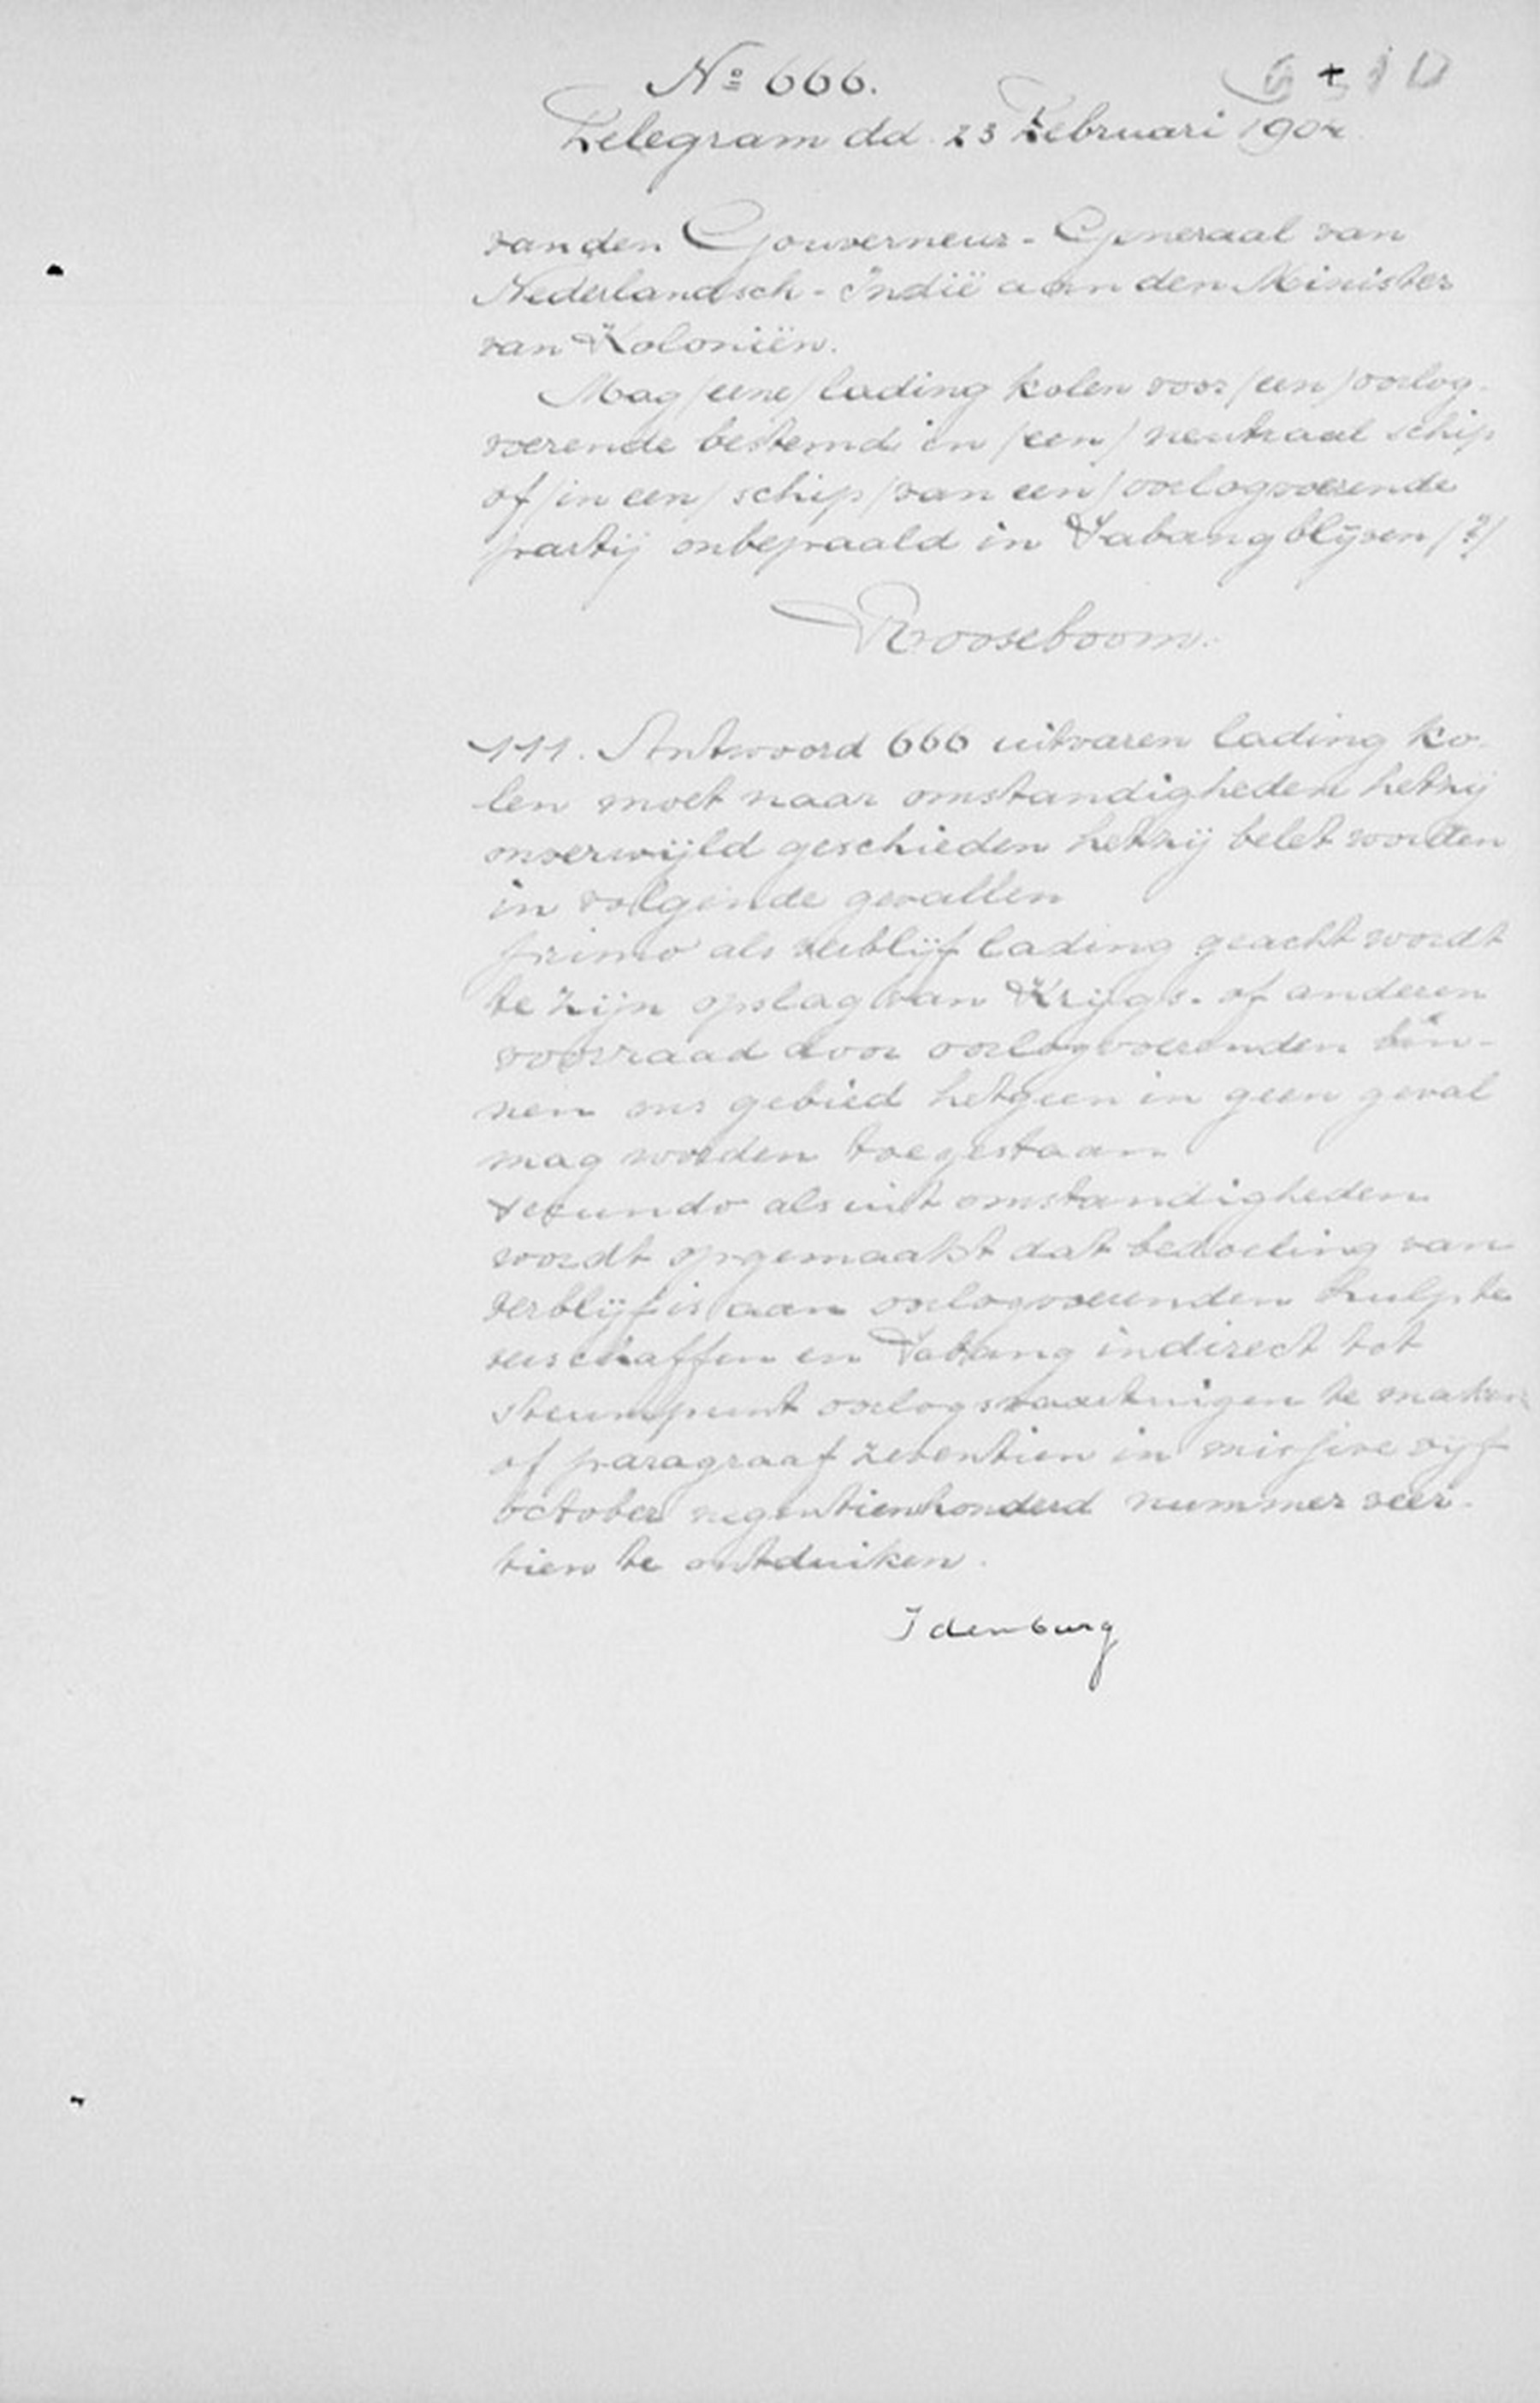 No 666.
Telegram dd. 23 Februari 1904
van den Gouverneur-Generaal van
Nederlandsch-Indië aan den Minister
van Koloniën.
Mag (eene) lading kolen voor (een) oorlog-
voerende bestemd in (een) neutraal schip
of (in een) schip (van een) oorlogvoerende
partij onbepaald in Sabang blijven (?)
Rooseboom.
111. Antwoord 666 uitvaren lading ko-
len moet naar omstandigheden hetzij
onverwijld geschieden hetzij belet worden
in volgende gevallen
primo als verblijf lading geacht wordt
te zijn opslag van Krijgs- of anderen
voorraad door oorlogvoerenden bin-
nen ons gebied hetgeen in geen geval
mag worden toegestaan
secundo als uit omstandigheden
wordt opgemaakt dat bedoeling van
verblijf is aan oorlogvoerenden hulp te
verschaffen en Sabang indirect tot
steunpunt oorlogsvaartuigen te maken
of paragraaf zeventien in missive vijf
october negentienhonderd nummer veer-
tien te ontduiken.
Idenburg